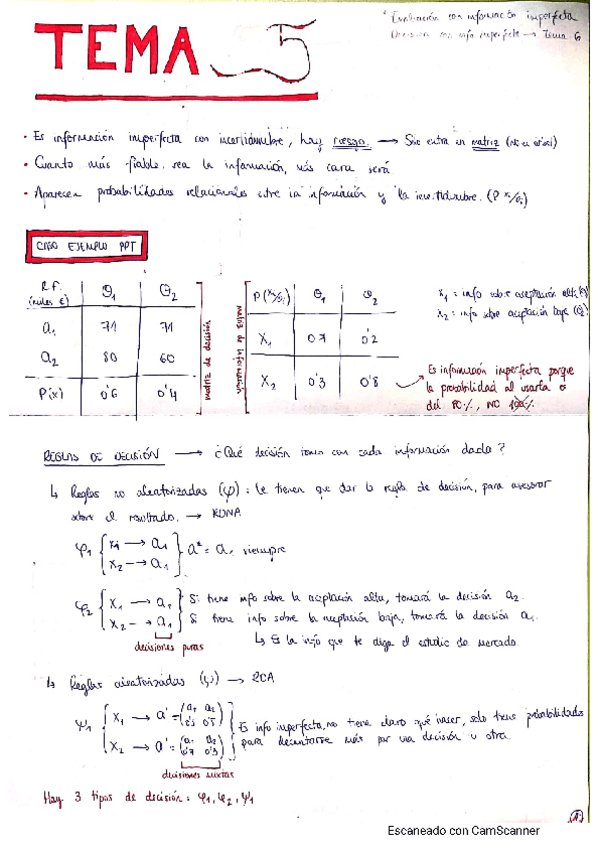 TEMA 5
* Evaluación con información imperfecta
Decisión con info imperfecta → Tema 6
· Es información imperfecta con incertidumbre, hay riesgo. → Sólo entra un matriz (no es árbol)
· Cuanto más fiable sea la información, más cara será.
· Aparecen probabilidades relacionales entre la información y la incertidumbre. (P x/θi)
CASO EJEMPLO PPT
R.F. (miles €) θ1 θ2
a1 71 71
a2 80 60
P(x) 0'6 0'4
matriz de decisión
matriz de información
P(x/θi) θ1 θ2
X1 0'7 0'2
X2 0'3 0'8
x1 = info sobre aceptación alta (θ1)
x2 = info sobre aceptación baja (θ2)
Es información imperfecta porque
la probabilidad al usarla es
del 80%, NO 100%
REGLAS DE DECISIÓN → ¿Qué decisión tomo con cada información dada?
↳ Reglas no aleatorizadas (φ): le tienen que dar la regla de decisión, para asesorar
sobre el resultado. → RDNA
φ1 { x1 → a1
x2 → a1 } a* = a1 siempre
φ2 { x1 → a2 } Si tiene info sobre la aceptación alta, tomará la decisión a2.
x2 → a1 } Si tiene info sobre la aceptación baja, tomará la decisión a1.
decisiones puras
↳ Es la info que te diga el estudio de mercado.
↳ Reglas aleatorizadas (ψ) → RDA
ψ1 { x1 → a' = (a1 a2
0'5 0'5) } Es info imperfecta, no tiene claro qué hacer, solo tiene probabilidades
x2 → a' = (a1 a2
0'7 0'3) } para decantarse más por una decisión u otra.
decisiones mixtas
Hay 3 tipos de decisión: φ1, φ2, ψ1
1
Escaneado con CamScanner